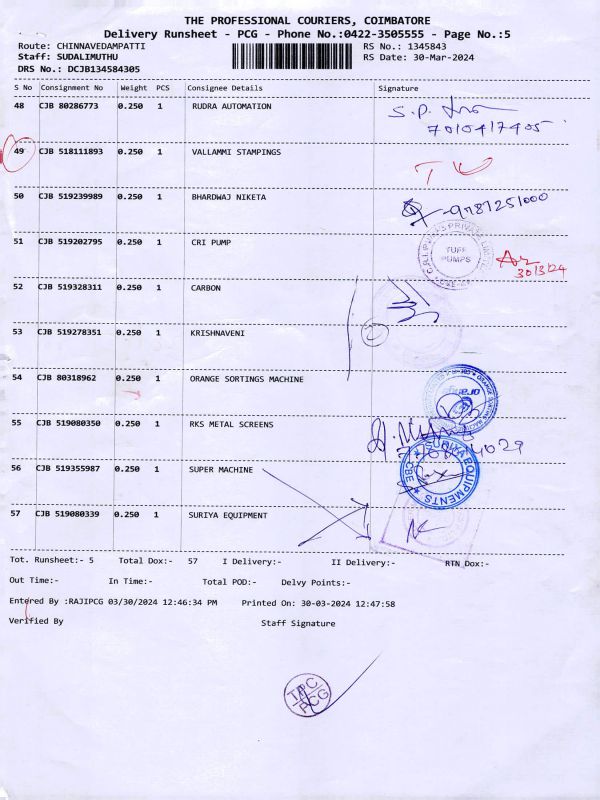 THE PROFESSIONAL COURIERS, COIMBATORE
Delivery Runsheet - PCG - Phone No.:0422-3505555 - Page No.:5
Route: CHINNAVEDAMPATTI RS No.: 1345843
Staff: SUDALIMUTHU RS Date: 30-Mar-2024
DRS No.: DCJB134584305
S No Consignment No Weight PCS Consignee Details Signature
48 CJB 80286773 0.250 1 RUDRA AUTOMATION
7010417405
49 CJB 518111893 0.250 1 VALLAMMI STAMPINGS
50 CJB 519239989 0.250 1 BHARDWAJ NIKETA
-9787251000
51 CJB 519202795 0.250 1 CRI PUMP
TUFF
PUMPS
30/3/24
52 CJB 519328311 0.250 1 CARBON
53 CJB 519278351 0.250 1 KRISHNAVENI
54 CJB 80318962 0.250 1 ORANGE SORTINGS MACHINE
55 CJB 519080350 0.250 1 RKS METAL SCREENS
56 CJB 519355987 0.250 1 SUPER MACHINE
SURIYA EQUIPMENTS
CBE
57 CJB 519080339 0.250 1 SURIYA EQUIPMENT
Tot. Runsheet:- 5 Total Dox:- 57 I Delivery:- II Delivery:- RTN Dox:-
Out Time:- In Time:- Total POD:- Delvy Points:-
Entered By :RAJIPCG 03/30/2024 12:46:34 PM Printed On: 30-03-2024 12:47:58
Verified By Staff Signature
TPC
PCG